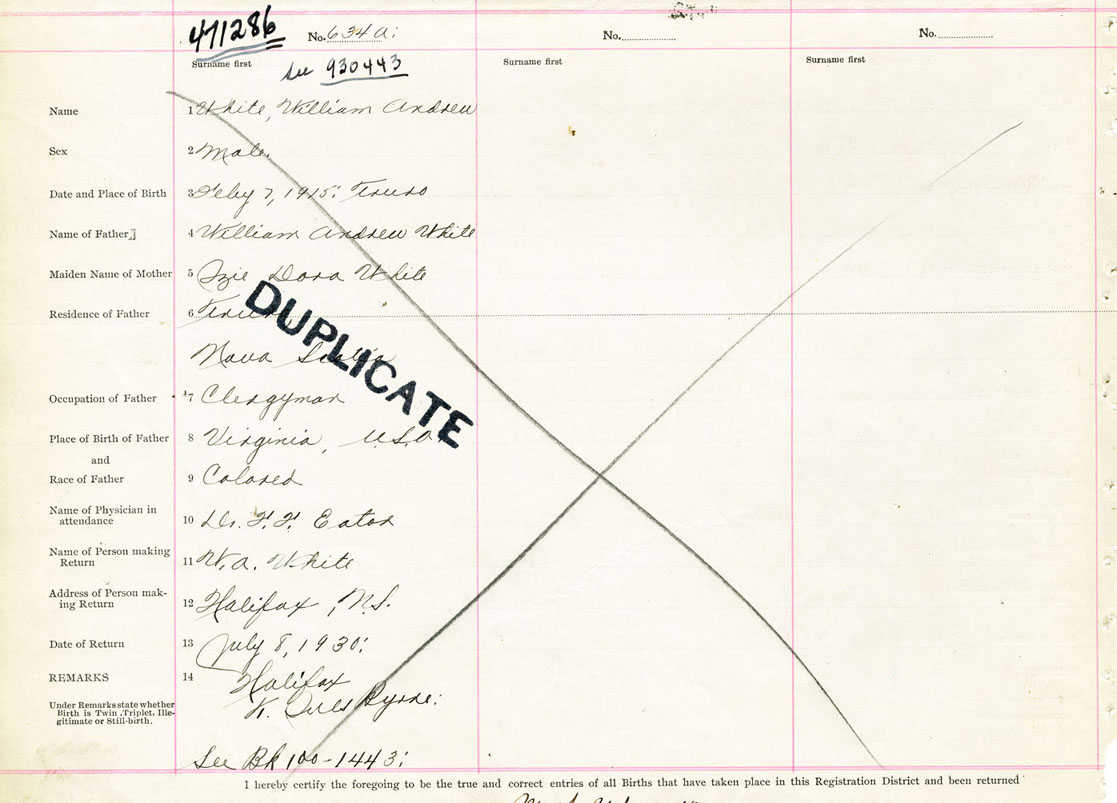 471286 No. 634 a: No. No.
Surname first See 930443 Surname first Surname first
Name 1 White, William Andrew
Sex 2 Male
Date and Place of Birth 3 Feby 7, 1915: Truro
Name of Father 4 William Andrew White
Maiden Name of Mother 5 Izie Dora White
Residence of Father 6 Truro
Nova Scotia
DUPLICATE
Occupation of Father 7 Clergyman
Place of Birth of Father 8 Virginia, U.S.A
and
Race of Father 9 Colored
Name of Physician in
attendance 10 Dr. F. F. Eaton
Name of Person making
Return 11 W. A. White
Address of Person mak-
ing Return 12 Halifax, N.S.
Date of Return 13 July 8, 1930:
REMARKS 14 Halifax
Under Remarks state whether
Birth is Twin, Triplet, Ille-
gitimate or Still-birth.
Byrne:
See Bk 100-1443:
I hereby certify the foregoing to be the true and correct entries of all Births that have taken place in this Registration District and been returned